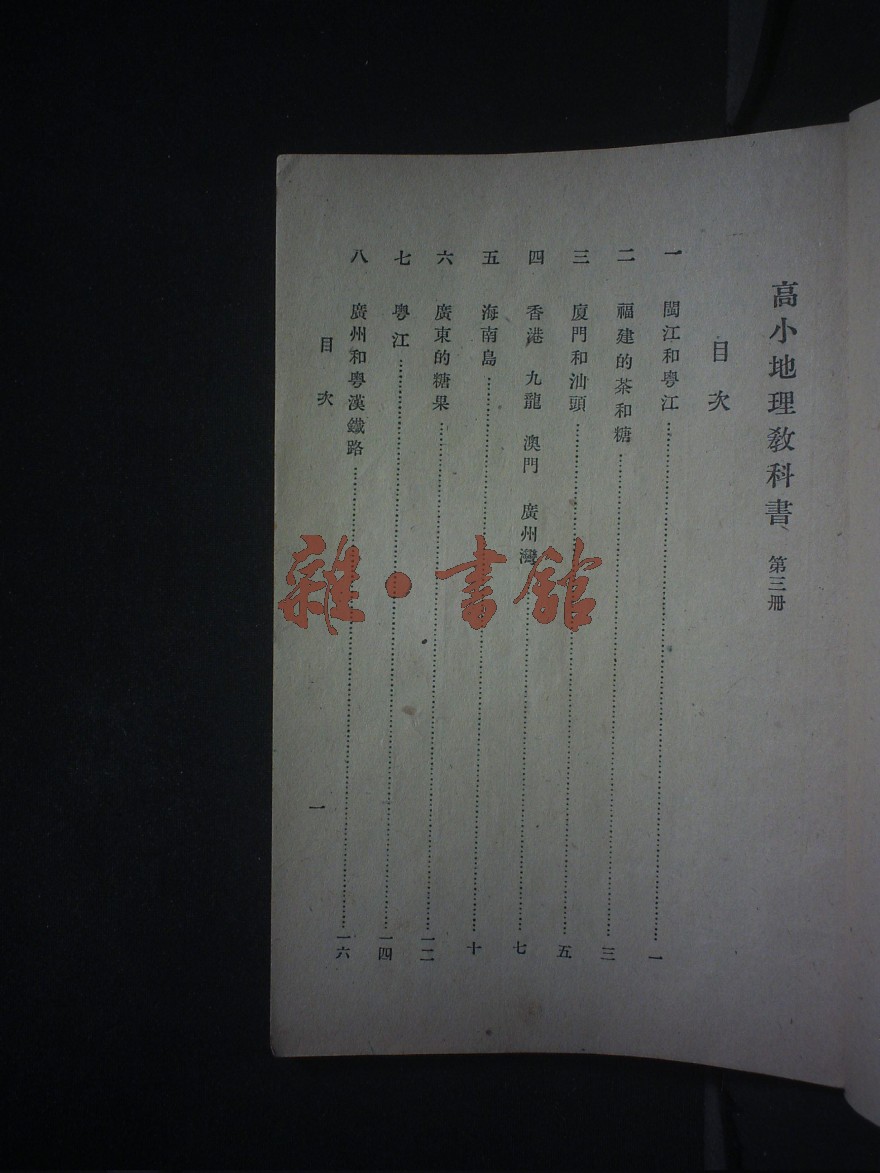 高小地理敎科書 第三册
目次
一 閩江和粵江………一
二 福建的茶和糖………三
三 厦門和汕頭………五
四 香港 九龍 澳門 廣州灣………七
五 海南島………十
六 廣東的糖果………一二
七 粵江………一四
八 廣州和粵漢鐵路………一六
目次 一
雜·書館